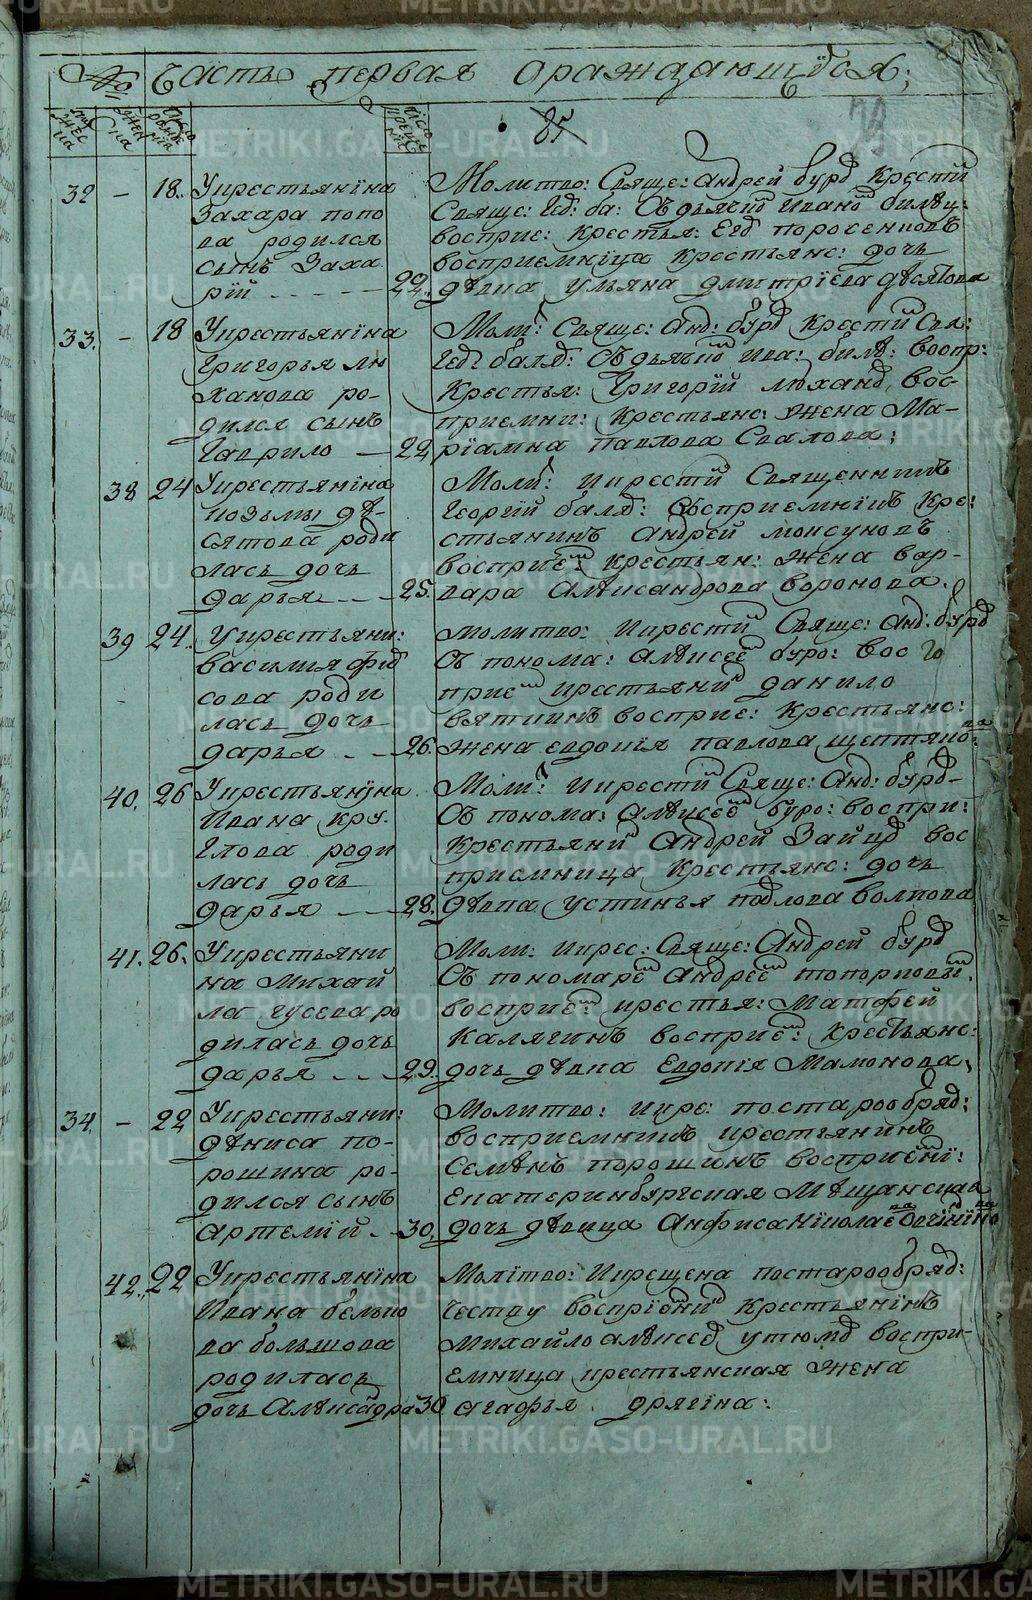 № Часть первая ораждающихся;
муж
жес
ка
жен
ска
число
рожде
нiя
число
креще
нiя
85
32 – 18. Укрестьянiна
Захара попо
ва родился
сынъ Заха
рiй 22.
Молитво: Свяще: Андрей бурд Крестi
Свяще: Геѡ: ба: Съ дьячко Ивано биляц:
восприе: Крестья: Егѡ порсченковъ
восприемнiца Крестьянс: дочь
дѣвка Ульяна дмитрiева дѣсятова
33. – 18 Укрестьянiна
Григорья лю
ханова ро-
дился сынъ
Гаврило – 22
Моли: Свяще: Анд: бурд Крестi Свя:
Геѡ балд: Съ дьячко Ива: биля: воспр:
Крестья: Григорiй люханѡ, вос-
приемни: Крестьянс: Жена Ма-
рiамна павлова Свалова;
38 24 Укрестьянiна
козьмы дѣ-
сятова роди
лась дочь
дарья 25.
Моли: икрестi Священникъ
Георгiй балд: Восприемнiкъ Кре:
стьянинъ Андрей моксуновъ
восприе: Крестьян: Жена вар-
вара Алѣксандрова воронова.
39 24. Укрестьяни:
василия фiр
сова роди
лась дочь
дарья 26.
Молитво: икрестi Свяще: Анд: бурд
Съ понома: Алѣксѣе буро: вос
прие крестьяни данило
вяткинъ восприе: Крестьянс:
Жена евдокiя павлова щептяко:
ва
40. 26 Укрестьянiна
Ивана кру.
глова роди
лась дочь
дарья 28.
Моли: икрестi Свяще: Анд: бурд-
Съ понома: Алѣксѣе буро: воспри:
Крестьяни Андрей Зайцѡ вос
приемница Крестьянс: дочь
дѣвка устинья подлова волкова
41. 26. Укрестьяни
на Михай
ла гусева ро
дилась дочь
дарья 29.
Моли: икрес: Свяще: Андрей бурд
Съ пономаре Андрее топорковы.
восприе: крестья: Матфей
Калягинъ восприе: Крестьянс:
дочь дѣвка Евдокiя Мамонова,
34. – 22 Укрестьяни:
дѣниса по-
рошина ро-
дился сынъ
Артемiй 30.
Молитво: икре: постарообряд:
восприемникъ крестьянинъ
Семѣнъ порошинъ восприемнi:
Екатеринбургская Мѣщанская
дочь дѣвица Анфиса Нiколаева Овчiнiко
42. 22 Укрестьянiна
Ивана белько
ва большова
родилась
дочь Алѣксадра 30
Молiтво: икрещена постарообряд:
честву воспрiемни Крестьянiнъ
Михайло алѣксеѡ, утюмѡ воспри-
емница крестьянская Жена
агафья. дрягiна: